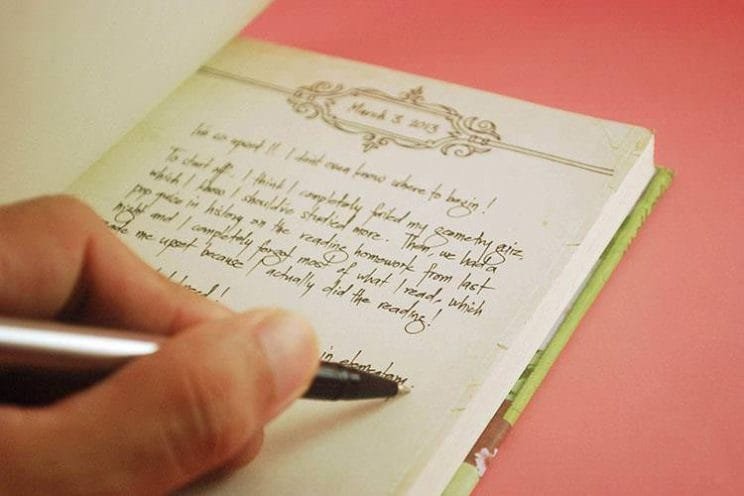 March 3, 2013
I'm so upset !! I don't even know where to begin !
To start off... I think I completely failed my geometry quiz,
which I know I should've studied more. Then, we had a
pop quiz in history on the reading homework from last
night and I completely forgot most of what I read, which
made me upset because I actually did the reading!
in elementary.